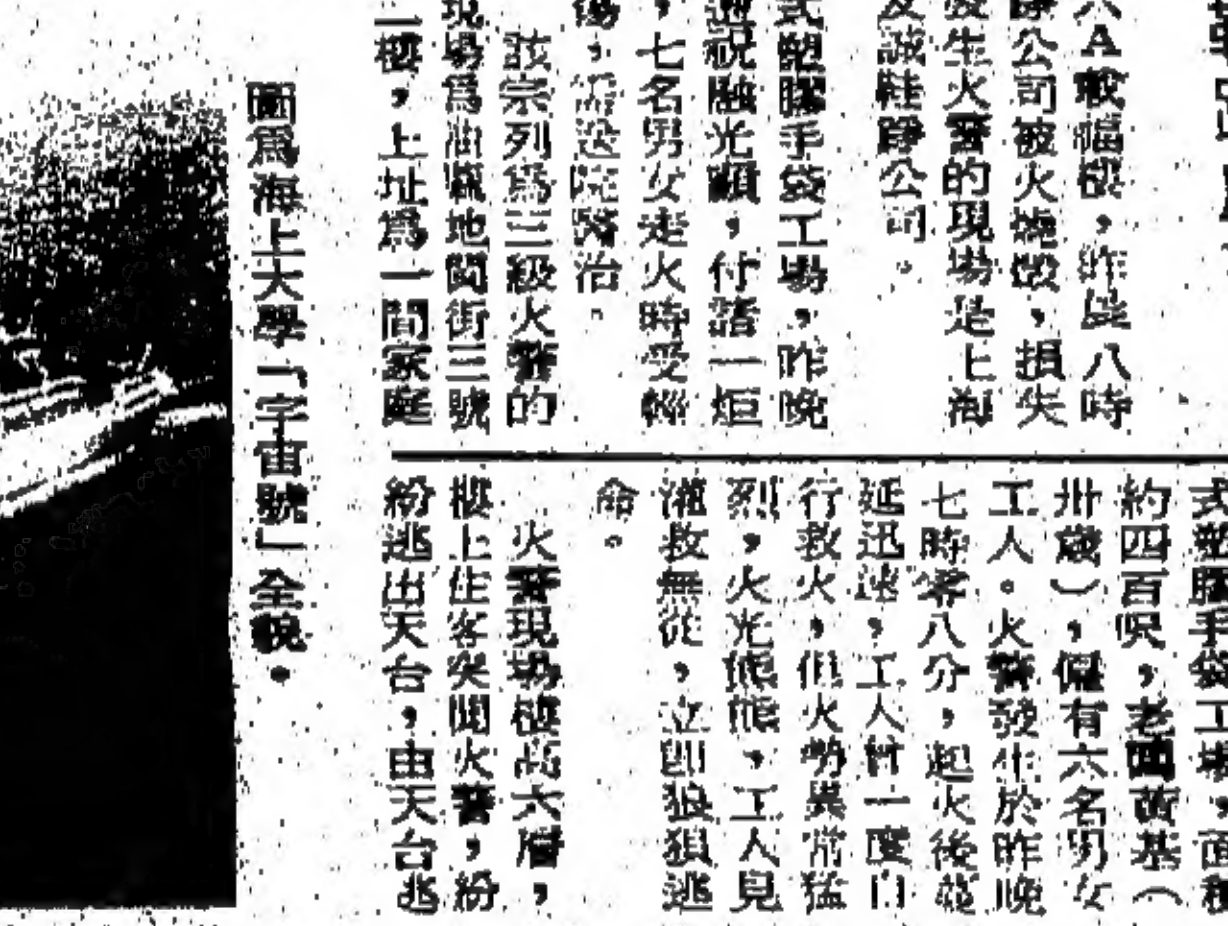 六A載福樓，昨晨八時
公司被火燒燬，損失
發生火警的現場是上海
友誠鞋公司。
式塑膠手袋工場，昨晚
祝融光顧，付諸一炬
，七名男女走火時受輕
傷，需送院醫治。
該宗列爲三級火警的
現場爲油蔴地閩街三號
二樓，上址爲一間家庭
式塑膠手袋工場，面積
約四百呎，老闆黃基（
卅歲），僱有六名男女
工人。火警發生於昨晚
七時零八分，起火後蔓
延迅速，工人曾一度自
行救火，但火勢異常猛
烈，火光熊熊，工人見
灌救無從，立即狼狽逃
命。
火警現場樓高六層，
樓上住客突聞火警，紛
紛逃出天台，由天台逃
圖爲海上大學「宇宙號」全貌．